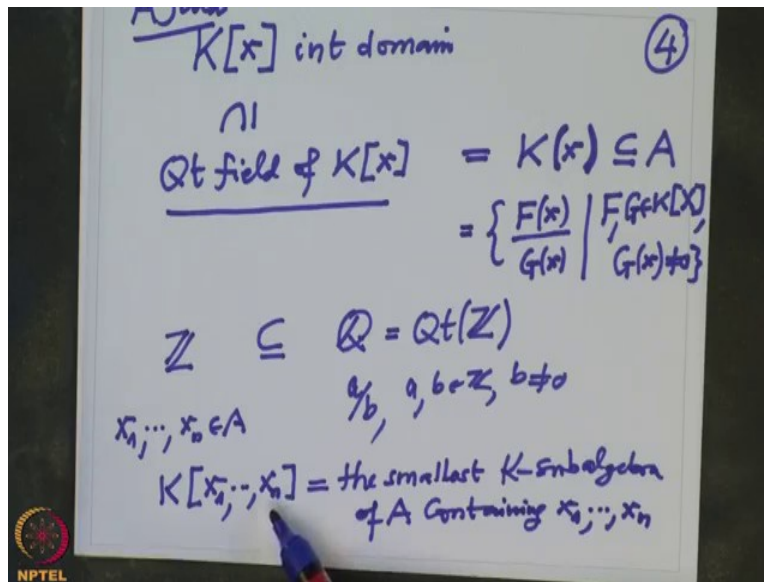 K[x] int domain
④
∩|
Qt field of K[x] = K(x) ⊆ A
= { F(x)/G(x) | F, G ∈ K[X], G(x) ≠ 0 }
ℤ ⊆ ℚ = Qt(ℤ)
a/b, a, b ∈ ℤ, b ≠ 0
x₁, ..., xₙ ∈ A
K[x₁, ..., xₙ] = the smallest K-subalgebra
of A Containing x₁, ..., xₙ
NPTEL